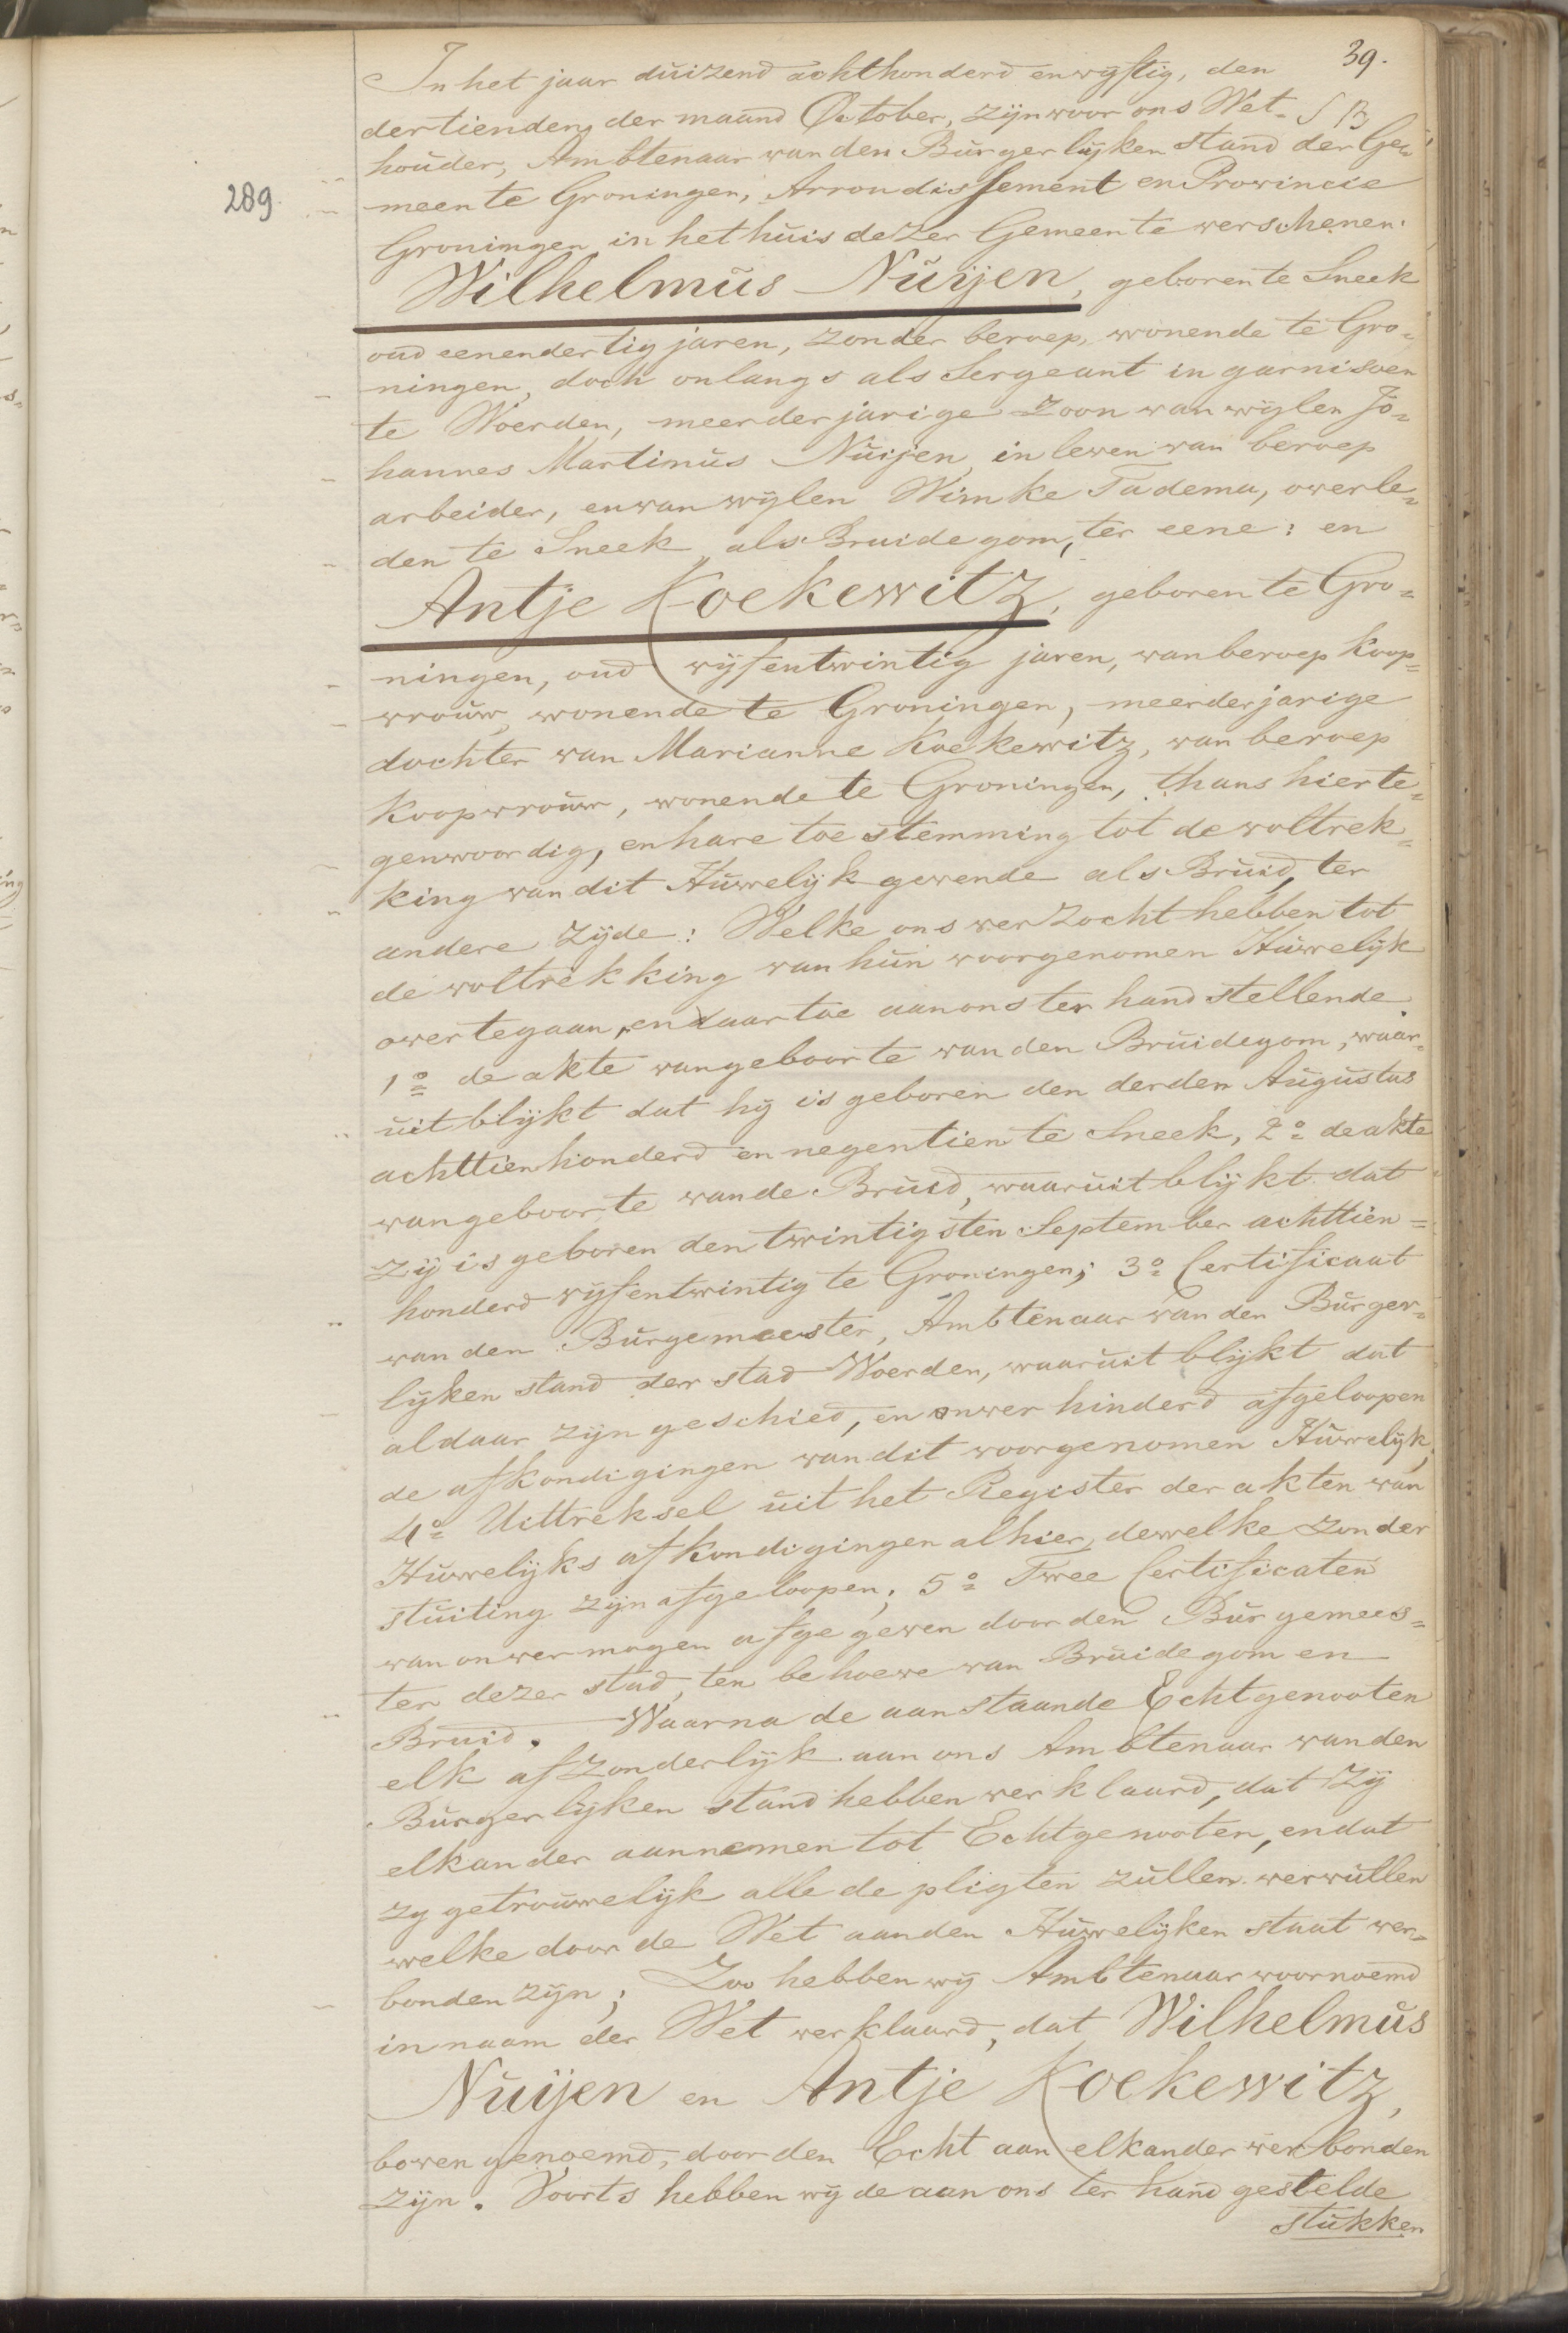 39.
In het jaar duizend achthonderd en vijftig, den
dertienden der maand October, zijn voor ons Wet-
houder, Ambtenaar van den Burgerlijken stand der Ge-
289.
meente Groningen, Arrondissement en Provincie
Groningen in het huis dezer Gemeente verschenen:
Wilhelmus Nuijen, geboren te Sneek
oud eenendertig jaren, zonder beroep, wonende te Gro-
ningen, doch onlangs als Sergeant in garnisoen
te Woerden, meerderjarige Zoon van wijlen Jo-
hannes Martinus Nuijen, in leven van beroep
arbeider, en van wijlen Wimke Tadema, overle-
den te Sneek, als Bruidegom, ter eene: en
Antje Koekewitz, geboren te Gro-
ningen, oud vijfentwintig jaren, van beroep koop-
vrouw, wonende te Groningen, meerderjarige
dochter van Marianne Koekewitz, van beroep
koopvrouw, wonende te Groningen, thans hier te-
genwoordig, en hare toestemming tot de voltrek-
king van dit Huwelijk gevende als Bruid, ter
andere zijde: Welke ons verzocht hebben tot
de voltrekking van hun voorgenomen Huwelijk
over te gaan, en daartoe aan ons ter hand stellende
1o de akte van geboorte van den Bruidegom, waar-
uit blijkt dat hij is geboren den derden Augustus
achttienhonderd en negentien te Sneek, 2o de akte
van geboorte van de Bruid, waaruit blijkt dat
zij is geboren den twintigsten September achttien-
honderd vijfentwintig te Groningen; 3o Certificaat
van den Burgemeester, Ambtenaar van den Burger-
lijken stand der stad Woerden, waaruit blijkt dat
aldaar zijn geschied, en onverhinderd afgeloopen
de afkondigingen van dit voorgenomen Huwelijk;
4o Uittreksel uit het Register der akten van
Huwelijks afkondigingen alhier, dewelke zonder
stuiting zijn afgeloopen; 5o Twee Certificaten
van onvermogen afgegeven door den Burgemees-
ter dezer stad, ten behoeve van Bruidegom en
Bruid. Waarna de aanstaande Echtgenooten
elk afzonderlijk aan ons Ambtenaar van den
Burgerlijken stand hebben verklaard, dat zij
elkander aannemen tot Echtgenooten, en dat
zy getrouwelijk alle de pligten zullen vervullen
welke door de Wet aan den Huwelijken staat ver-
bonden zijn; Zoo hebben wij Ambtenaar voornoemd
in naam der Wet verklaard, dat Wilhelmus
Nuijen en Antje Koekewitz,
boven genoemd, door den Echt aan elkander verbonden
zijn. Voorts hebben wij de aan ons ter hand gestelde
stukken